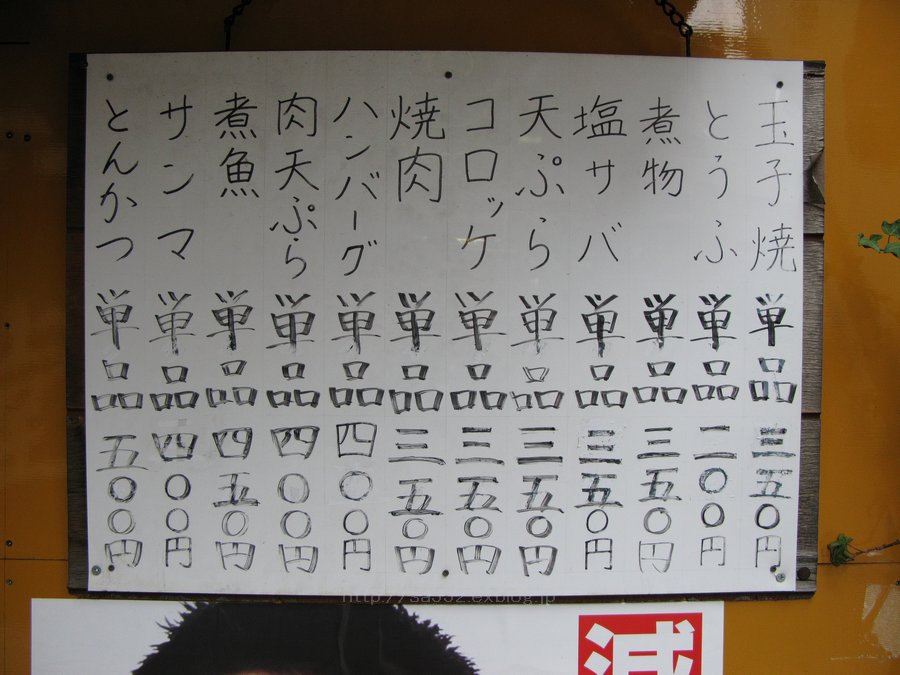 玉子焼単品三五〇円
とうふ単品二〇〇円
煮物単品三五〇円
塩サバ単品三五〇円
天ぷら単品三五〇円
コロッケ単品三五〇円
焼肉単品三五〇円
ハンバーグ単品四〇〇円
肉天ぷら単品四〇〇円
煮魚単品四五〇円
サンマ単品四〇〇円
とんかつ単品五〇〇円
http://sa552.exblog.jp
減